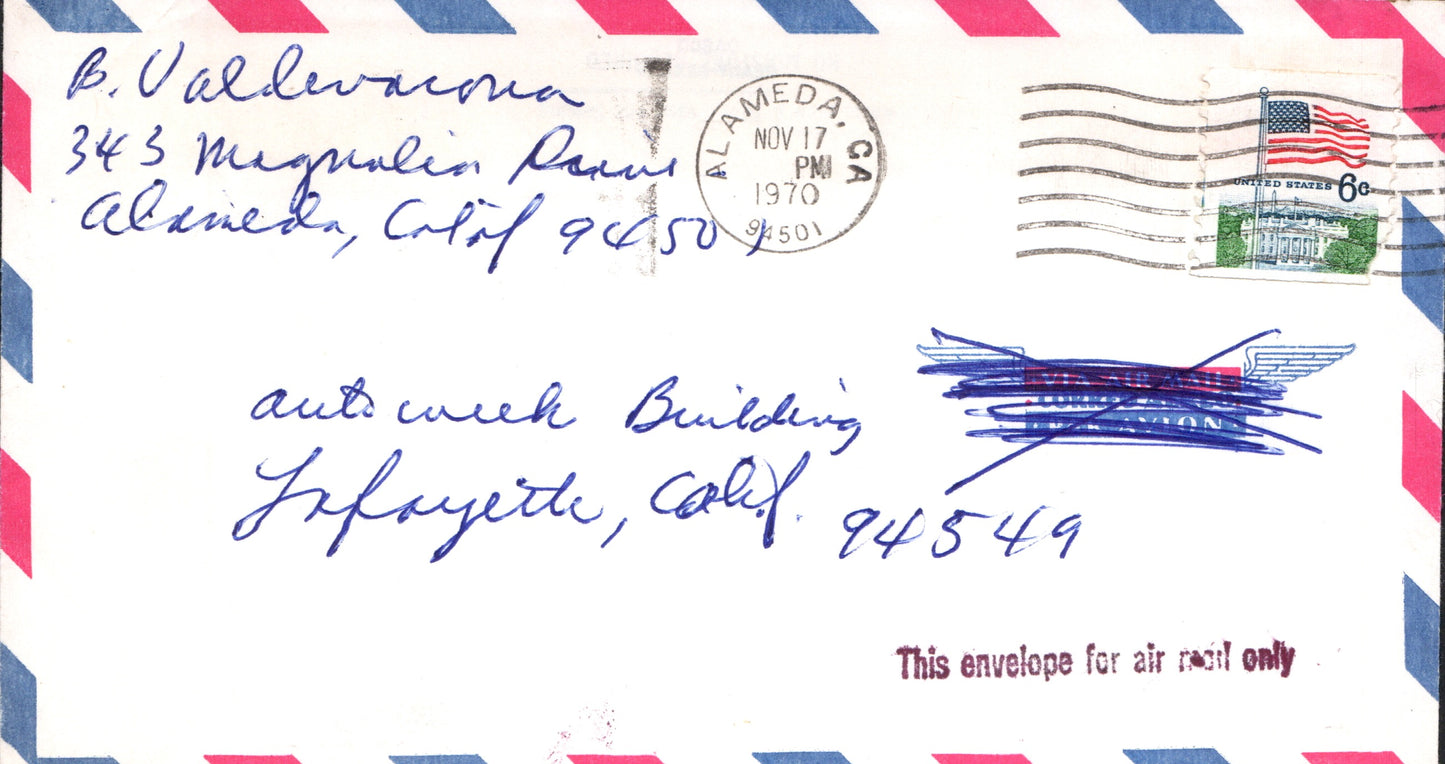 B. Valdevarona
343 Magnolia Drive
Alameda, Calif 94501
ALAMEDA, CA
NOV 17
PM
1970
94501
UNITED STATES 6c
VIA AIR MAIL
CORREO AEREO
PAR AVION
autoweek Building
Lafayette, Calif. 94549
This envelope for air mail only